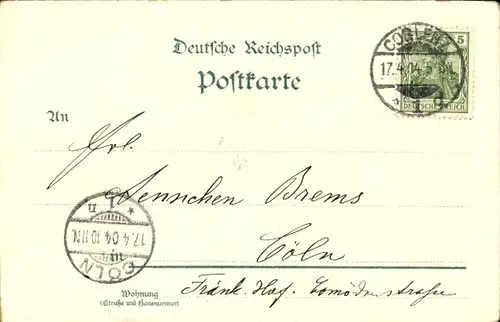 Deutsche Reichspost
Postkarte
COBLENZ
17.4.04.
5
DEUTSCHES REICH
An
Frl.
Aennchen Brems
Cöln
CÖLN
17.4.04.10-11N.
Wohnung
(Straße und Hausnummer)
Fränk. Hof. straße